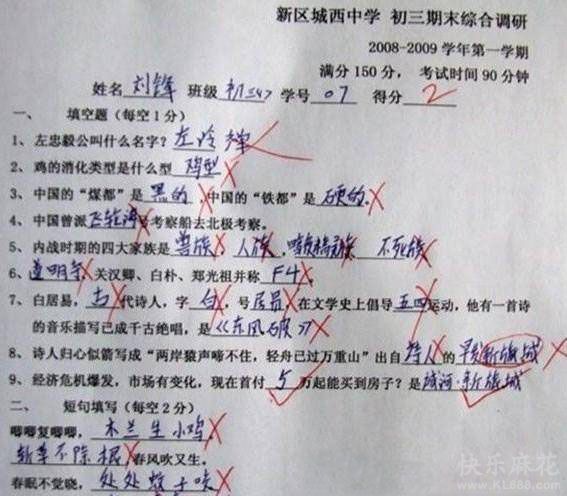 新区城西中学 初三期末综合调研
2008-2009学年第一学期
满分150分，考试时间90分钟
姓名 刘锋 班级 初三4> 学号 07 得分 2
一、 填空题（每空1分）
1、左忠毅公叫什么名字？左冷禅
2、鸡的消化类型是什么型 鸡型
3、中国的“煤都”是 黑的，中国的“铁都”是 硬的。
4、中国曾派 飞轮海号考察船去北极考察。
5、内战时期的四大家族是 兽族，人族，暗夜精灵族 不死族
6、道明寺、关汉卿、白朴、郑光祖并称 F4
7、白居易，古代诗人，字 白，号 居易，在文学史上倡导 五四运动，他有一首诗
的音乐描写已成千古绝唱，是《东风破》
8、诗人归心似箭写成“两岸猿声啼不住，轻舟已过万重山”出自 诗人 的 早发新旗城
9、经济危机爆发，市场有变化，现在首付 5 万起能买到房子？是 城河·新旗城
二、 短句填写（每空2分）
唧唧复唧唧，木兰生小鸡
斩草不除根，春风吹又生。
春眠不觉晓，处处蚊子咬
快乐麻花
www.KL688.com